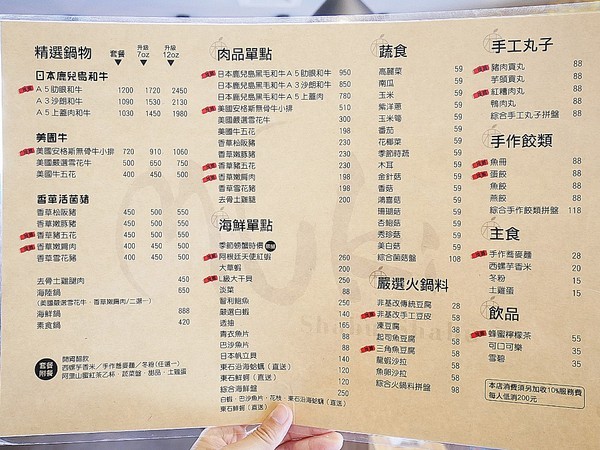 精選鍋物 套餐 升級7oz 升級12oz
日本鹿兒島和牛
A5肋眼和牛 1200 1720 2450
A3沙朗和牛 1090 1530 2130
A5上蓋肉和牛 1030 1450 1980
美國牛
美國安格斯無骨牛小排 720 910 1060
美國嚴選雪花牛 500 650 750
美國牛五花 400 450 500
香草活菌豬
香草松阪豬 450 500 550
香草嫩豚豬 450 500 550
香草豬五花 400 450 500
香草嫩肩肉 400 450 500
香草雪花豬 400 450 500
去骨土雞腿肉 450
海陸鍋 650
(美國嚴選雪花牛、香草嫩肩肉/二選一)
海鮮鍋 888
素食鍋 420
套餐附餐
開鍋醋飲
西螺芋香米/手作蕎麥麵/冬粉(任選一)
阿里山蜜紅茶乙杯、蔬菜盤、甜品、土雞蛋
肉品單點
日本鹿兒島黑毛和牛A5肋眼和牛 950
日本鹿兒島黑毛和牛A3沙朗和牛 850
日本鹿兒島黑毛和牛A5上蓋肉 780
美國安格斯無骨牛小排 510
美國嚴選雪花牛 300
美國牛五花 198
香草松阪豬 230
香草嫩豚豬 230
香草豬五花 198
香草嫩肩肉 198
香草雪花豬 198
去骨土雞腿 200
海鮮單點
季節螃蟹時價
阿根廷天使紅蝦 260
大草蝦 200
L級大干貝
淡菜
智利鮑魚
嚴選白蝦
透抽
青衣魚片
巴沙魚片
日本帆立貝
東石沿海蛤蠣(直送)
東石鮮蚵(直送)
綜合海鮮盤
白蝦、巴沙魚片、花枝、東石沿海蛤蠣(直送)
東石鮮蚵(直送)
蔬食
高麗菜 59
南瓜 59
玉米 59
紫洋蔥 59
玉米筍 59
番茄 59
花椰菜 59
季節時蔬 59
木耳 59
金針菇 59
香菇 59
鴻喜菇 59
珊瑚菇 59
杏鮑菇 59
秀珍菇 59
美白菇 59
綜合菌菇盤 108
嚴選火鍋料
非基改傳統豆腐 28
非基改手工豆皮 58
凍豆腐 38
起司魚豆腐 58
三角魚豆腐 58
龍蝦沙拉 58
魚卵沙拉 58
綜合火鍋料拼盤 98
手工丸子
豬肉貢丸 88
芋頭貢丸 88
紅糟肉丸 88
鴨肉丸 88
綜合手工丸子拼盤 88
手作餃類
魚冊 88
蛋餃 88
魚餃 88
燕餃 88
綜合手作餃類拼盤 118
主食
手作蕎麥麵 28
西螺芋香米 20
冬粉 15
土雞蛋 15
飲品
蜂蜜檸檬茶 55
可口可樂 35
雪碧 35
本店消費須另加收10%服務費
每人低消200元